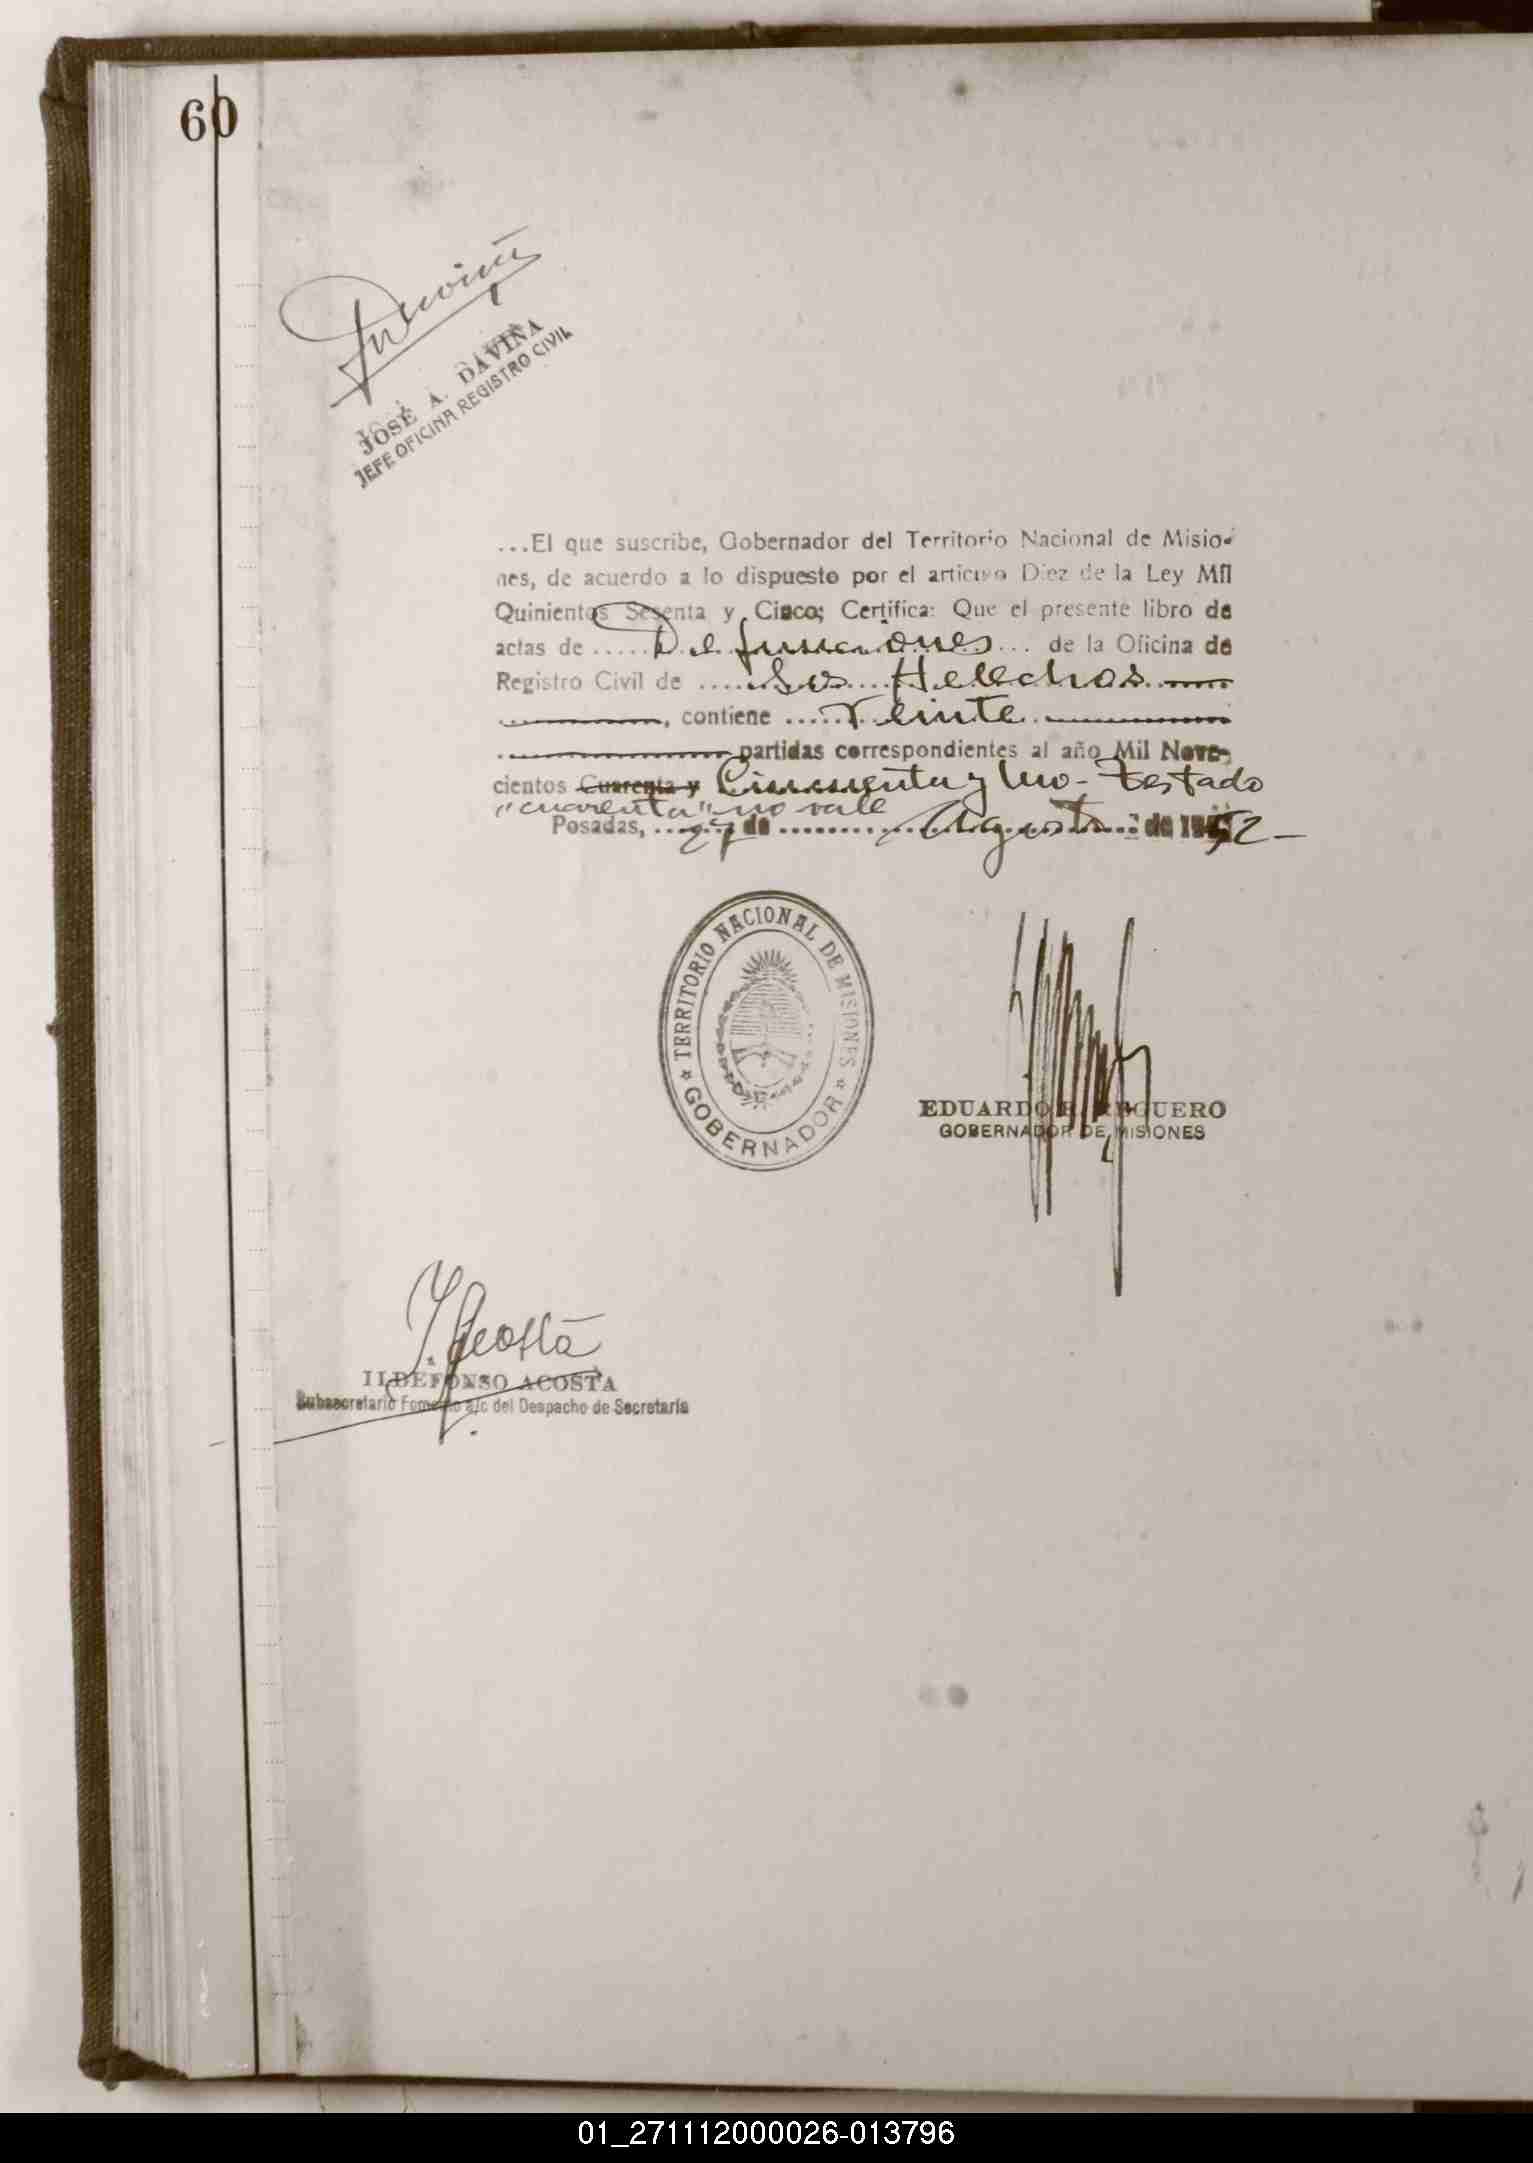 60
JOSÉ A. DAVIÑA
JEFE OFICINA REGISTRO CIVIL
...El que suscribe, Gobernador del Territorio Nacional de Misio-
nes, de acuerdo a lo dispuesto por el articulo Diez de la Ley Mil
Quinientos Sesenta y Cinco; Certifica: Que el presente libro de
actas de ..... Defunciones ... de la Oficina de
Registro Civil de ..... Los Helechos
, contiene ..... Veinte
partidas correspondientes al año Mil Nove-
cientos Cuarenta y Cincuenta y Uno - Testado
"cuarenta" no vale
Posadas, ... 27 de ... Agosto ... de 1952 -
TERRITORIO NACIONAL DE MISIONES
GOBERNADOR
EDUARDO REGUERO
GOBERNADOR DE MISIONES
I. Acosta
ILDEFONSO ACOSTA
Subsecretario Fomento a/c del Despacho de Secretaría
01_271112000026-013796